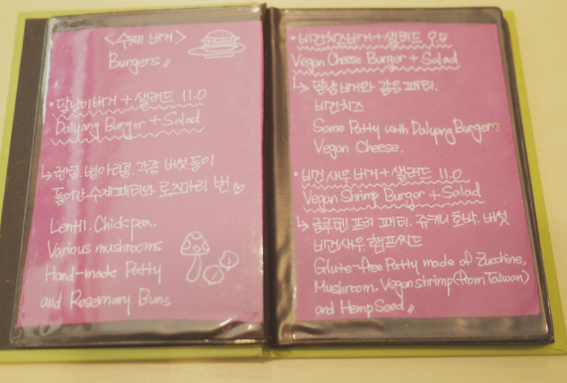 <수제 버거>
Burgers
• 달냥이버거 + 샐러드 11.0
Dalyang Burger + Salad
↳ 렌틸콩. 병아리콩. 각종 버섯 등이
들어간 수제패티와 로즈마리 번 ♡
Lentil. Chickpea.
Various mushrooms
Hand-made Patty
and Rosemary Buns
• 비건치즈버거 + 샐러드
Vegan Cheese Burger + Salad
↳ 달냥버거와 같은 패티.
비건치즈
Same Patty with Dalyang Burger.
Vegan Cheese.
• 비건 새우버거 + 샐러드 11.0
Vegan Shrimp Burger + Salad
↳ 글루텐 프리 패티. 쥬키니 호박. 버섯
비건새우 햄프씨드
Glute-free Patty made of Zucchine,
Mushroom. Vegan shrimp (from Taiwan)
and Hemp Seed